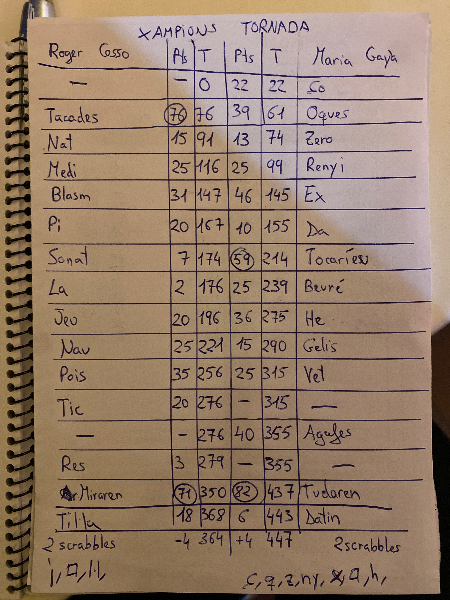 XAMPIONS TORNADA
Roger Cosso Pts T Pts T Maria Gaya
— – 0 22 22 Ço
Tacades 76 76 39 61 Oques
Nat 15 91 13 74 Zero
Medi 25 116 25 99 Renyi
Blasm 31 147 46 145 Ex
Pi 20 167 10 155 Da
Sonat 7 174 59 214 Tocaríeu
La 2 176 25 239 Beuré
Jeu 20 196 36 275 He
Nau 25 221 15 290 Gelis
Pois 35 256 25 315 Vet
Tic 20 276 – 315 —
— - 276 40 355 Agafes
Res 3 279 — 355 —
Miraren 71 350 82 437 Tudaren
Til·la 18 368 6 443 Datin
2 scrabbles -4 364 +4 447 2 scrabbles
ç, q, z, ny, x, h,